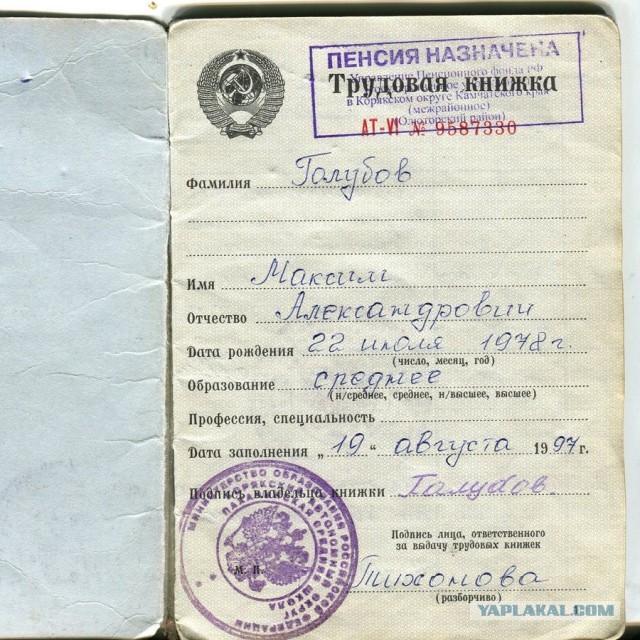 ПЕНСИЯ НАЗНАЧЕНА
Управление Пенсионного фонда РФ
Трудовая книжка
в Корякском округе Камчатского края
(межрайонное)
(Олюторский район)
АТ-VI № 9587330
Фамилия Голубов
Имя Максим
Отчество Александрович
Дата рождения 22 июля 1978 г.
(число, месяц, год)
Образование среднее
(н/среднее, среднее, н/высшее, высшее)
Профессия, специальность
Дата заполнения „19“ августа 1997 г.
Подпись владельца книжки Голубов.
МИНИСТЕРСТВО ОБРАЗОВАНИЯ РОССИЙСКОЙ ФЕДЕРАЦИИ
КОРЯКСКИЙ АВТОНОМНЫЙ ОКРУГ
СРЕДНЯЯ ШКОЛА
М. П.
Подпись лица, ответственного
за выдачу трудовых книжек
Тихонова
(разборчиво)
YAPLAKAL.COM